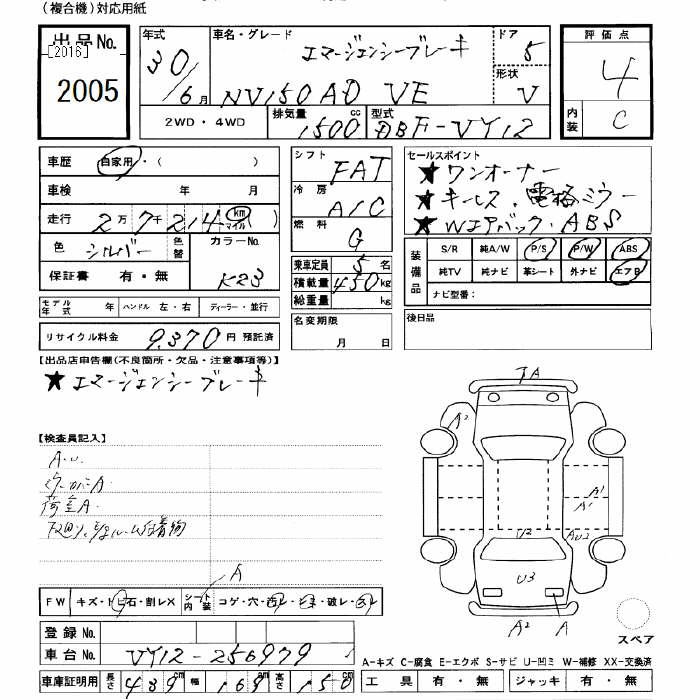 (複合機)対応用紙
出品No.
[2016]
2005
年式
30/6月
車名・グレード
エマージェンシーブレーキ
NV150AD VE
ドア
5
形状
V
2WD・4WD
排気量
1500cc
型式
DBF-VY12
評価点
4
内装
C
車歴 自家用・( )
車検 年 月
走行 2万7千214 km マイル )
色 シルバー 色替 カラーNo.
保証書 有・無 K23
シフト FAT
冷房 A/C
燃料 G
乗車定員 5名
積載量 450kg
総重量 kg
名変期限
月 日
セールスポイント
★ワンオーナー
★キーレス、電格ミラー
★Wエアバック、ABS
装備品
S/R 純A/W P/S P/W ABS
純TV 純ナビ 革シート 外ナビ エアB
ナビ型番:
後日品
モデル年式 年 ハンドル 左・右 ディーラー・並行
リサイクル料金 9,370円 預託済
【出品店申告欄(不良箇所・欠品・注意事項等)】
★エマージェンシーブレーキ
【検査員記入】
A.U.
荷室A.
A
FW キズ・トビ石・割レX シート内装 コゲ・穴・
・破レ・
登録No.
車台No. VY12-256979
車庫証明用 長さ 439cm 幅 169cm 高さ 150cm
A
A²
A¹
A¹
U2
AU2
U3
A²
A
スペア
A-キズ C-腐食 E-エクボ S-サビ U-凹ミ W-補修 XX-交換済
工具 有・無 ジャッキ 有・無